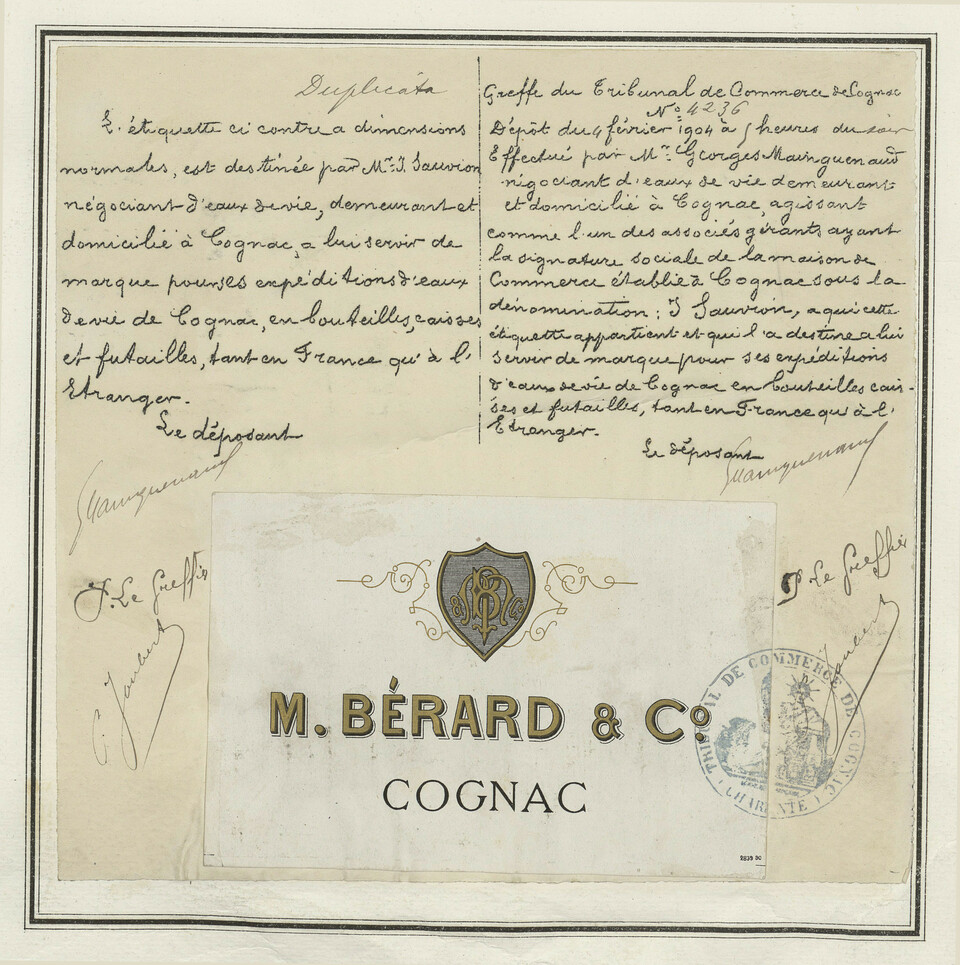 Duplicata
L'étiquette ci contre a dimensions
normales, est destinée par Mr. J. Sauvion
négociant d'eaux de vie, demeurant et
domicilié à Cognac, a lui servir de
marque pour ses expéditions d'eaux
de vie de Cognac, en bouteilles, caisses
et futailles, tant en France qu'à l'
Etranger.
Le déposant
Mainguenaud
P. Le Greffier
Joubert
Greffe du Tribunal de Commerce de Cognac
No. 4236
Dépôt du 4 février 1904 à 5 heures du soir
Effectué par Mr. Georges Mainguenaud
négociant d'eaux de vie demeurant
et domicilié à Cognac, agissant
comme l'un des associés gérants ayant
la signature sociale de la maison de
Commerce établie à Cognac sous la
dénomination: J Sauvion, a qui cette
étiquette appartient et qui l'a destine a lui
servir de marque pour ses expéditions
d'eaux de vie de Cognac en bouteilles cais-
ses et futailles, tant en France qu'à l'
Etranger.
Le déposant
Mainguenaud
P. Le Greffier
Joubert
M. BÉRARD & Co.
COGNAC
TRIBUNAL DE COMMERCE DE COGNAC
(CHARENTE)